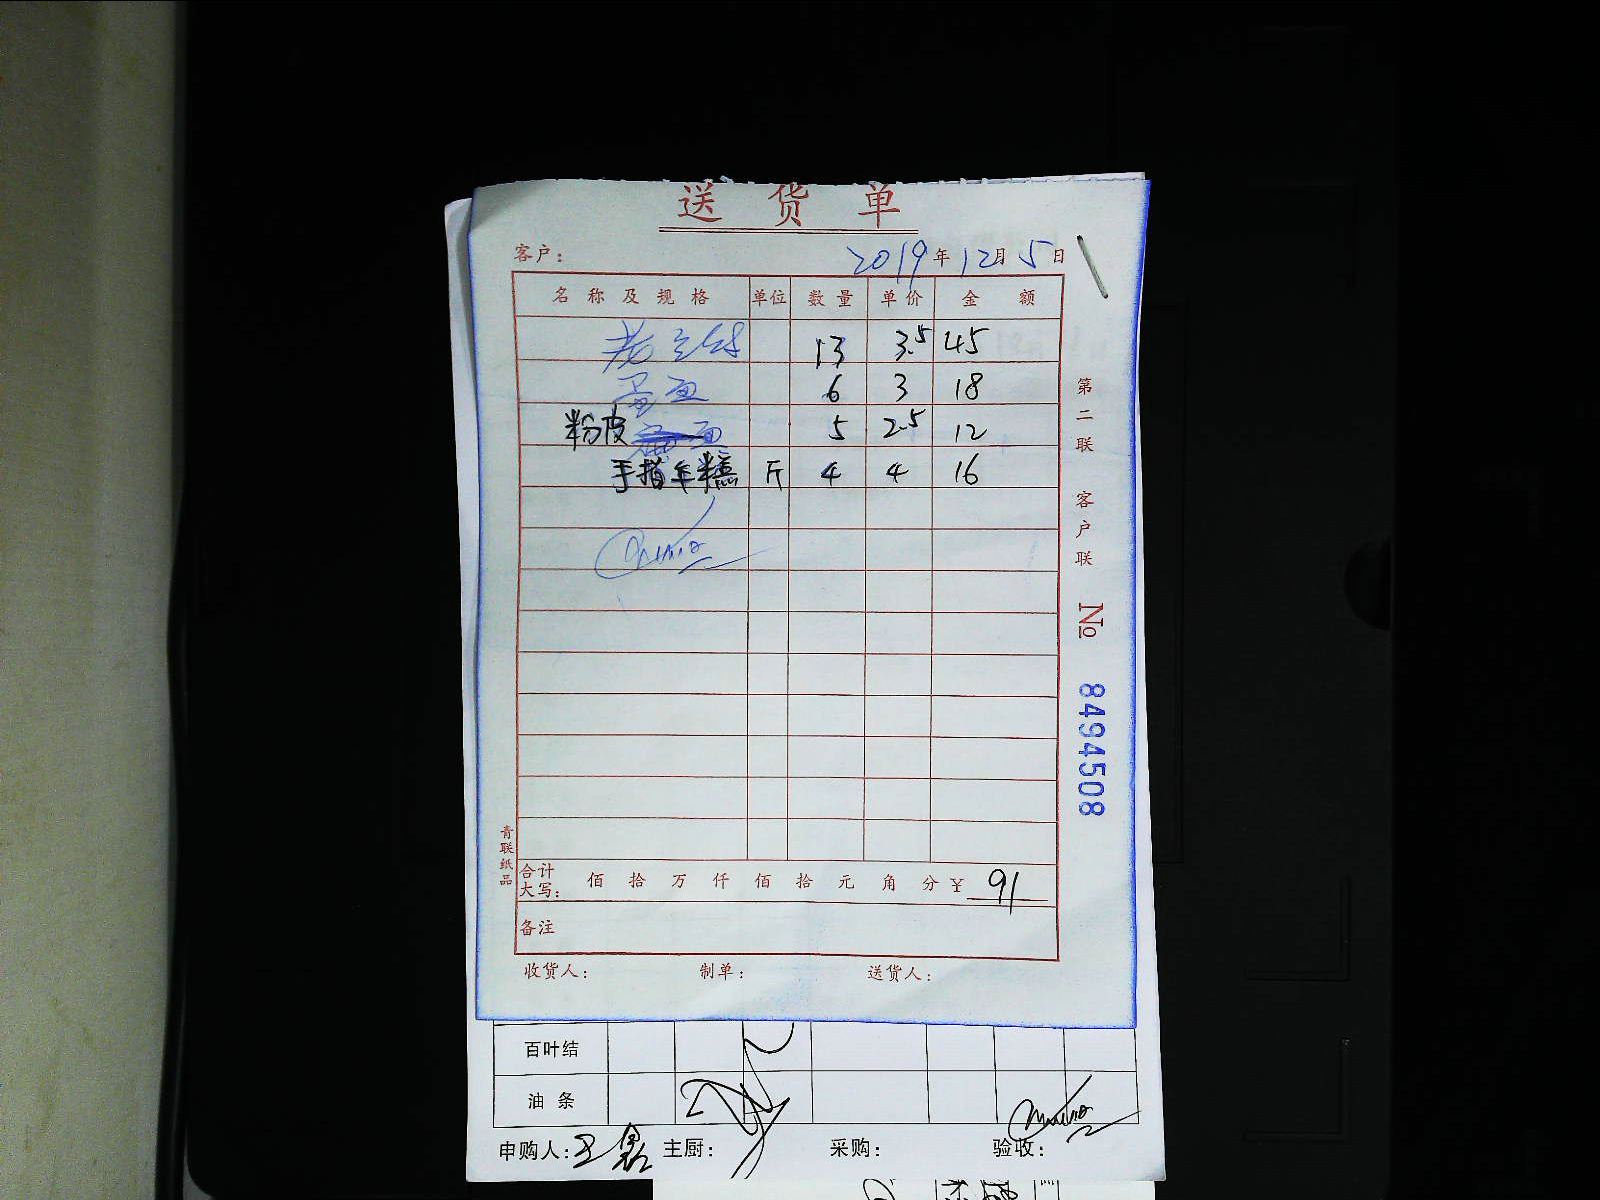 送货单
客户： 2019年12月5日
名称及规格 单位 数量 单价 金额
13 3.5 45
蛋面 6 3 18
粉皮 5 2.5 12
手指年糕 斤 4 4 16
合计大写： 佰 拾 万 仟 佰 拾 元 角 分 ¥ 91
备注
收货人： 制单： 送货人：
第二联 客户联 No 8494508
青联纸品
百叶结
油条
申购人： 主厨： 采购： 验收：